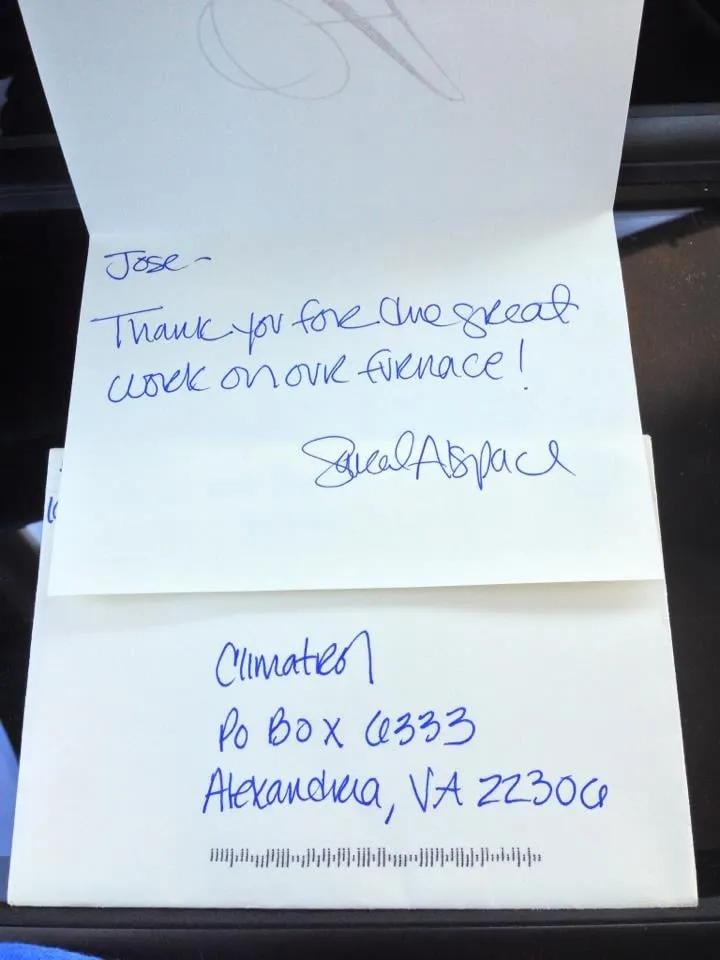 Jose-
Thank you for the great
work on our furnace!
Climatrol
PO BOX 6333
Alexandria, VA 22306